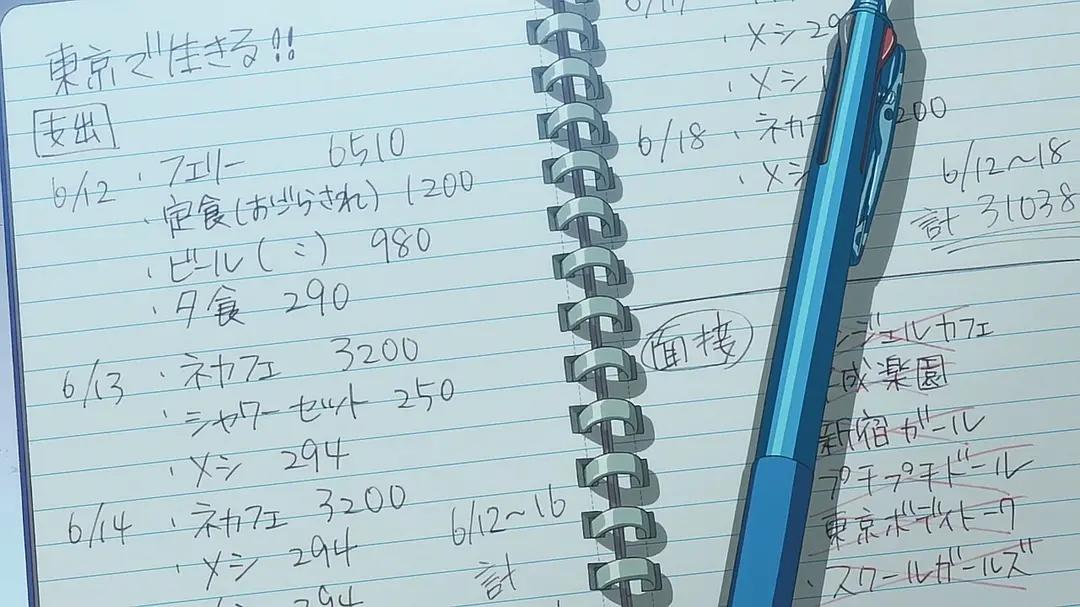 東京で生きる!!
支出
6/12 ・フェリー 6510
・定食(おごらされ) 1200
・ビール(〃) 980
・夕食 290
6/13 ・ネカフェ 3200
・シャワーセット 250
・メシ 294
6/14 ・ネカフェ 3200
・メシ 294
294
6/12~16
計
・メシ 29
・メシ
6/18 ・ネカフ 200
・メシ
6/12~18
計 31038
面接
ジェルカフェ
成楽園
新宿ガール
プチプチドール
東京ボディトーク
・スクールガールズ